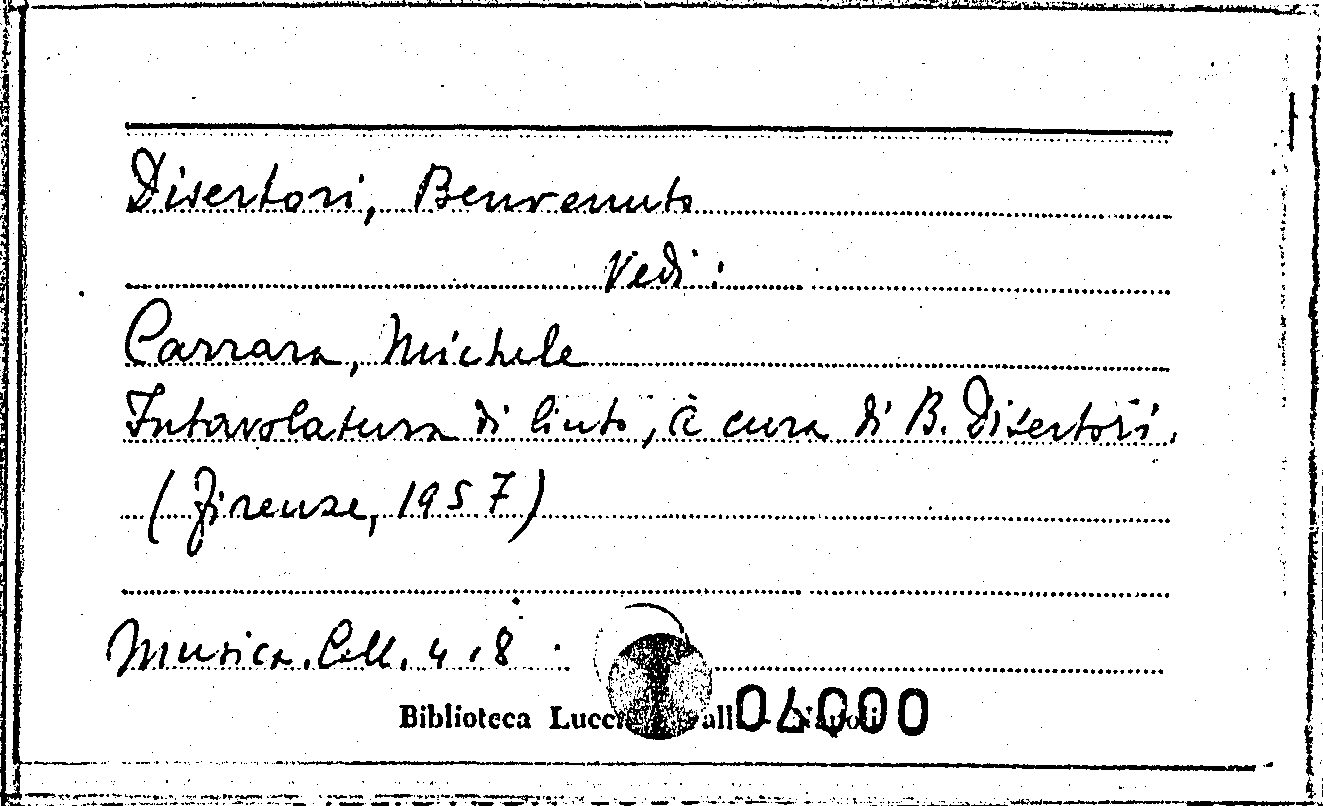 Disertori, Benvenuto
Vedi:
Carrara, Michele
Intavolatura di liuto, a cura di B. Disertori.
(Firenze, 1957)
Musica. Coll. 4.8
Biblioteca